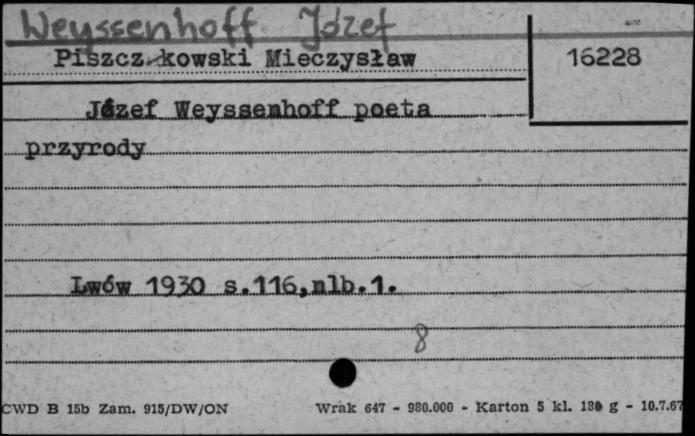 Weyssenhoff Józef
Piszczkowski Mieczysław
16228
Józef Weyssenhoff poeta
przyrody
Lwów 1930 s.116,nlb.1.
8
CWD B 15b Zam. 915/DW/ON
Wrak 647 - 980.000 - Karton 5 kl. 180 g - 10.7.67